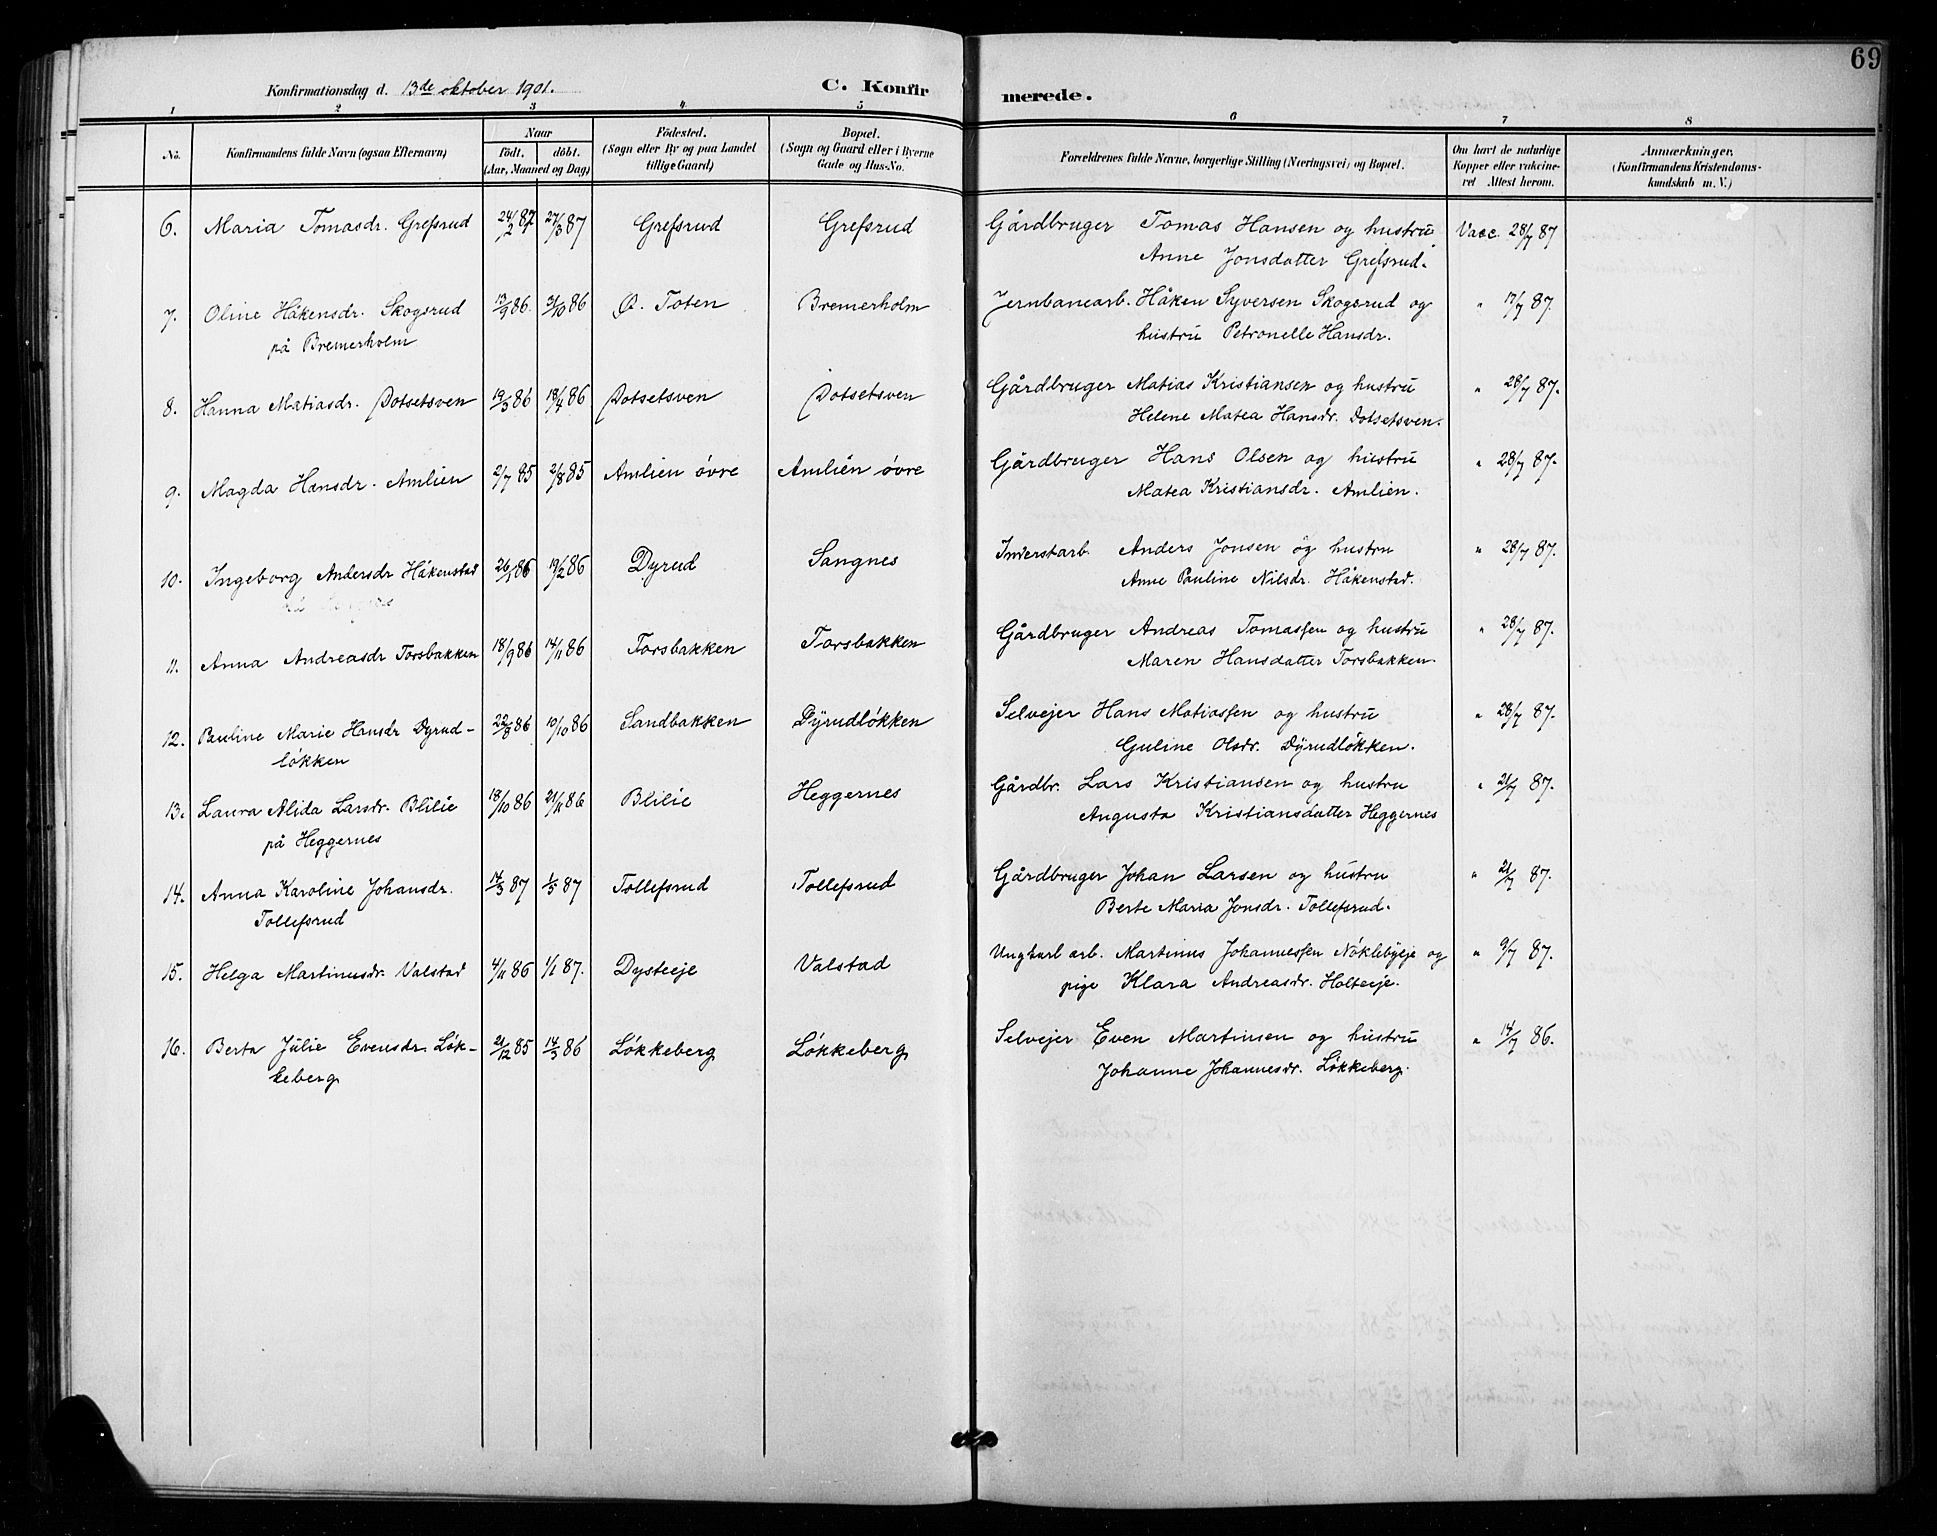 69
Konfirmationsdag d. 13de oktober 1901. C. Konfirmerede.
1 2 3 4 5 6 7 8
No. Konfirmandens fulde Navn (ogsaa Efternavn) Naar født. døbt. (Aar, Maaned og Dag) Fødested. (Sogn eller By og paa Landet tillige Gaard) Bopæl. (Sogn og Gaard eller i Byerne Gade og Hus-No. Forældrenes fulde Navne, borgerlige Stilling (Næringsvei) og Bopæl. Om havt de naturlige Kopper eller vakcineret Attest herom. Anmærkninger. (Konfirmandens Kristendomskundskab m. V.)
6. Maria Tomasdr. Grefsrud 24/2 87 27/3 87 Grefsrud Grefsrud Gårdbruger Tomas Hansen og hustru Vacc. 28/7 87
Anne Jonsdatter Grefsrud.
7. Oline Håkensdr. Skogsrud 13/9 86. 31/10 86 Ø. Toten Bremerholm Jernbanearb. Håken Syversen Skogsrud og " 17/7 87.
på Bremerholm hustru Petronelle Hansdr.
8. Hanna Matiasdr. Dotsetsven 19/3 86 18/4 86 Dotsetsven Dotsetsven Gårdbruger Matias Kristiansen og hustru " 28/7 87.
Helene Matea Hansdr. Dotsetsven.
9. Magda Hansdr. Amlien 2/7 85 2/8 85 Amlien øvre Amlien øvre Gårdbruger Hans Olsen og hustru " 28/7 87.
Matea Kristiansdr. Amlien.
10. Ingeborg Andersdr Håkenstad 26/1 86 19/2 86 Dyrud Sangnes Inderstarb. Anders Jonsen og hustru " 28/7 87.
Anne Pauline Nilsdr. Håkenstad.
11. Anna Andreasdr Torsbakken 18/9 86 14/11 86 Torsbakken Torsbakken Gårdbruger Andreas Tomassen og hustru " 28/7 87.
Maren Hansdatter Torsbakken.
12. Pauline Marie Hansdr Dyrud- 22/8 86 10/10 86 Sandbakken Dyrudløkken Selvejer Hans Matiassen og hustru " 28/7 87.
løkken Guline Olsdr. Dyrudløkken.
13. Laura Alida Larsdr. Blilie 18/10 86 21/11 86 Blilie Heggernes Gårdbr. Lars Kristiansen og hustru " 21/7 87.
på Heggernes Augusta Kristiansdatter Heggernes
14. Anna Karoline Johansdr. 14/3 87 1/5 87 Tollefsrud Tollefsrud Gårdbruger Johan Larsen og hustru " 21/7 87.
Tollefsrud Berte Maria Jonsdr. Tollefsrud.
15. Helga Martinusdr. Valstad 4/11 86 1/1 87. Dysteeje Valstad Ungkarl arb. Martinus Johannessen Nøklebyeje og " 9/7 87.
pige Klara Andreasdr. Holteeje.
16. Berta Julie Evensdr. Løk- 21/12 85 14/3 86 Løkkeberg Løkkeberg Selvejer Even Martinsen og hustru " 14/7 86.
keberg Johanne Johannesdr. Løkkeberg.